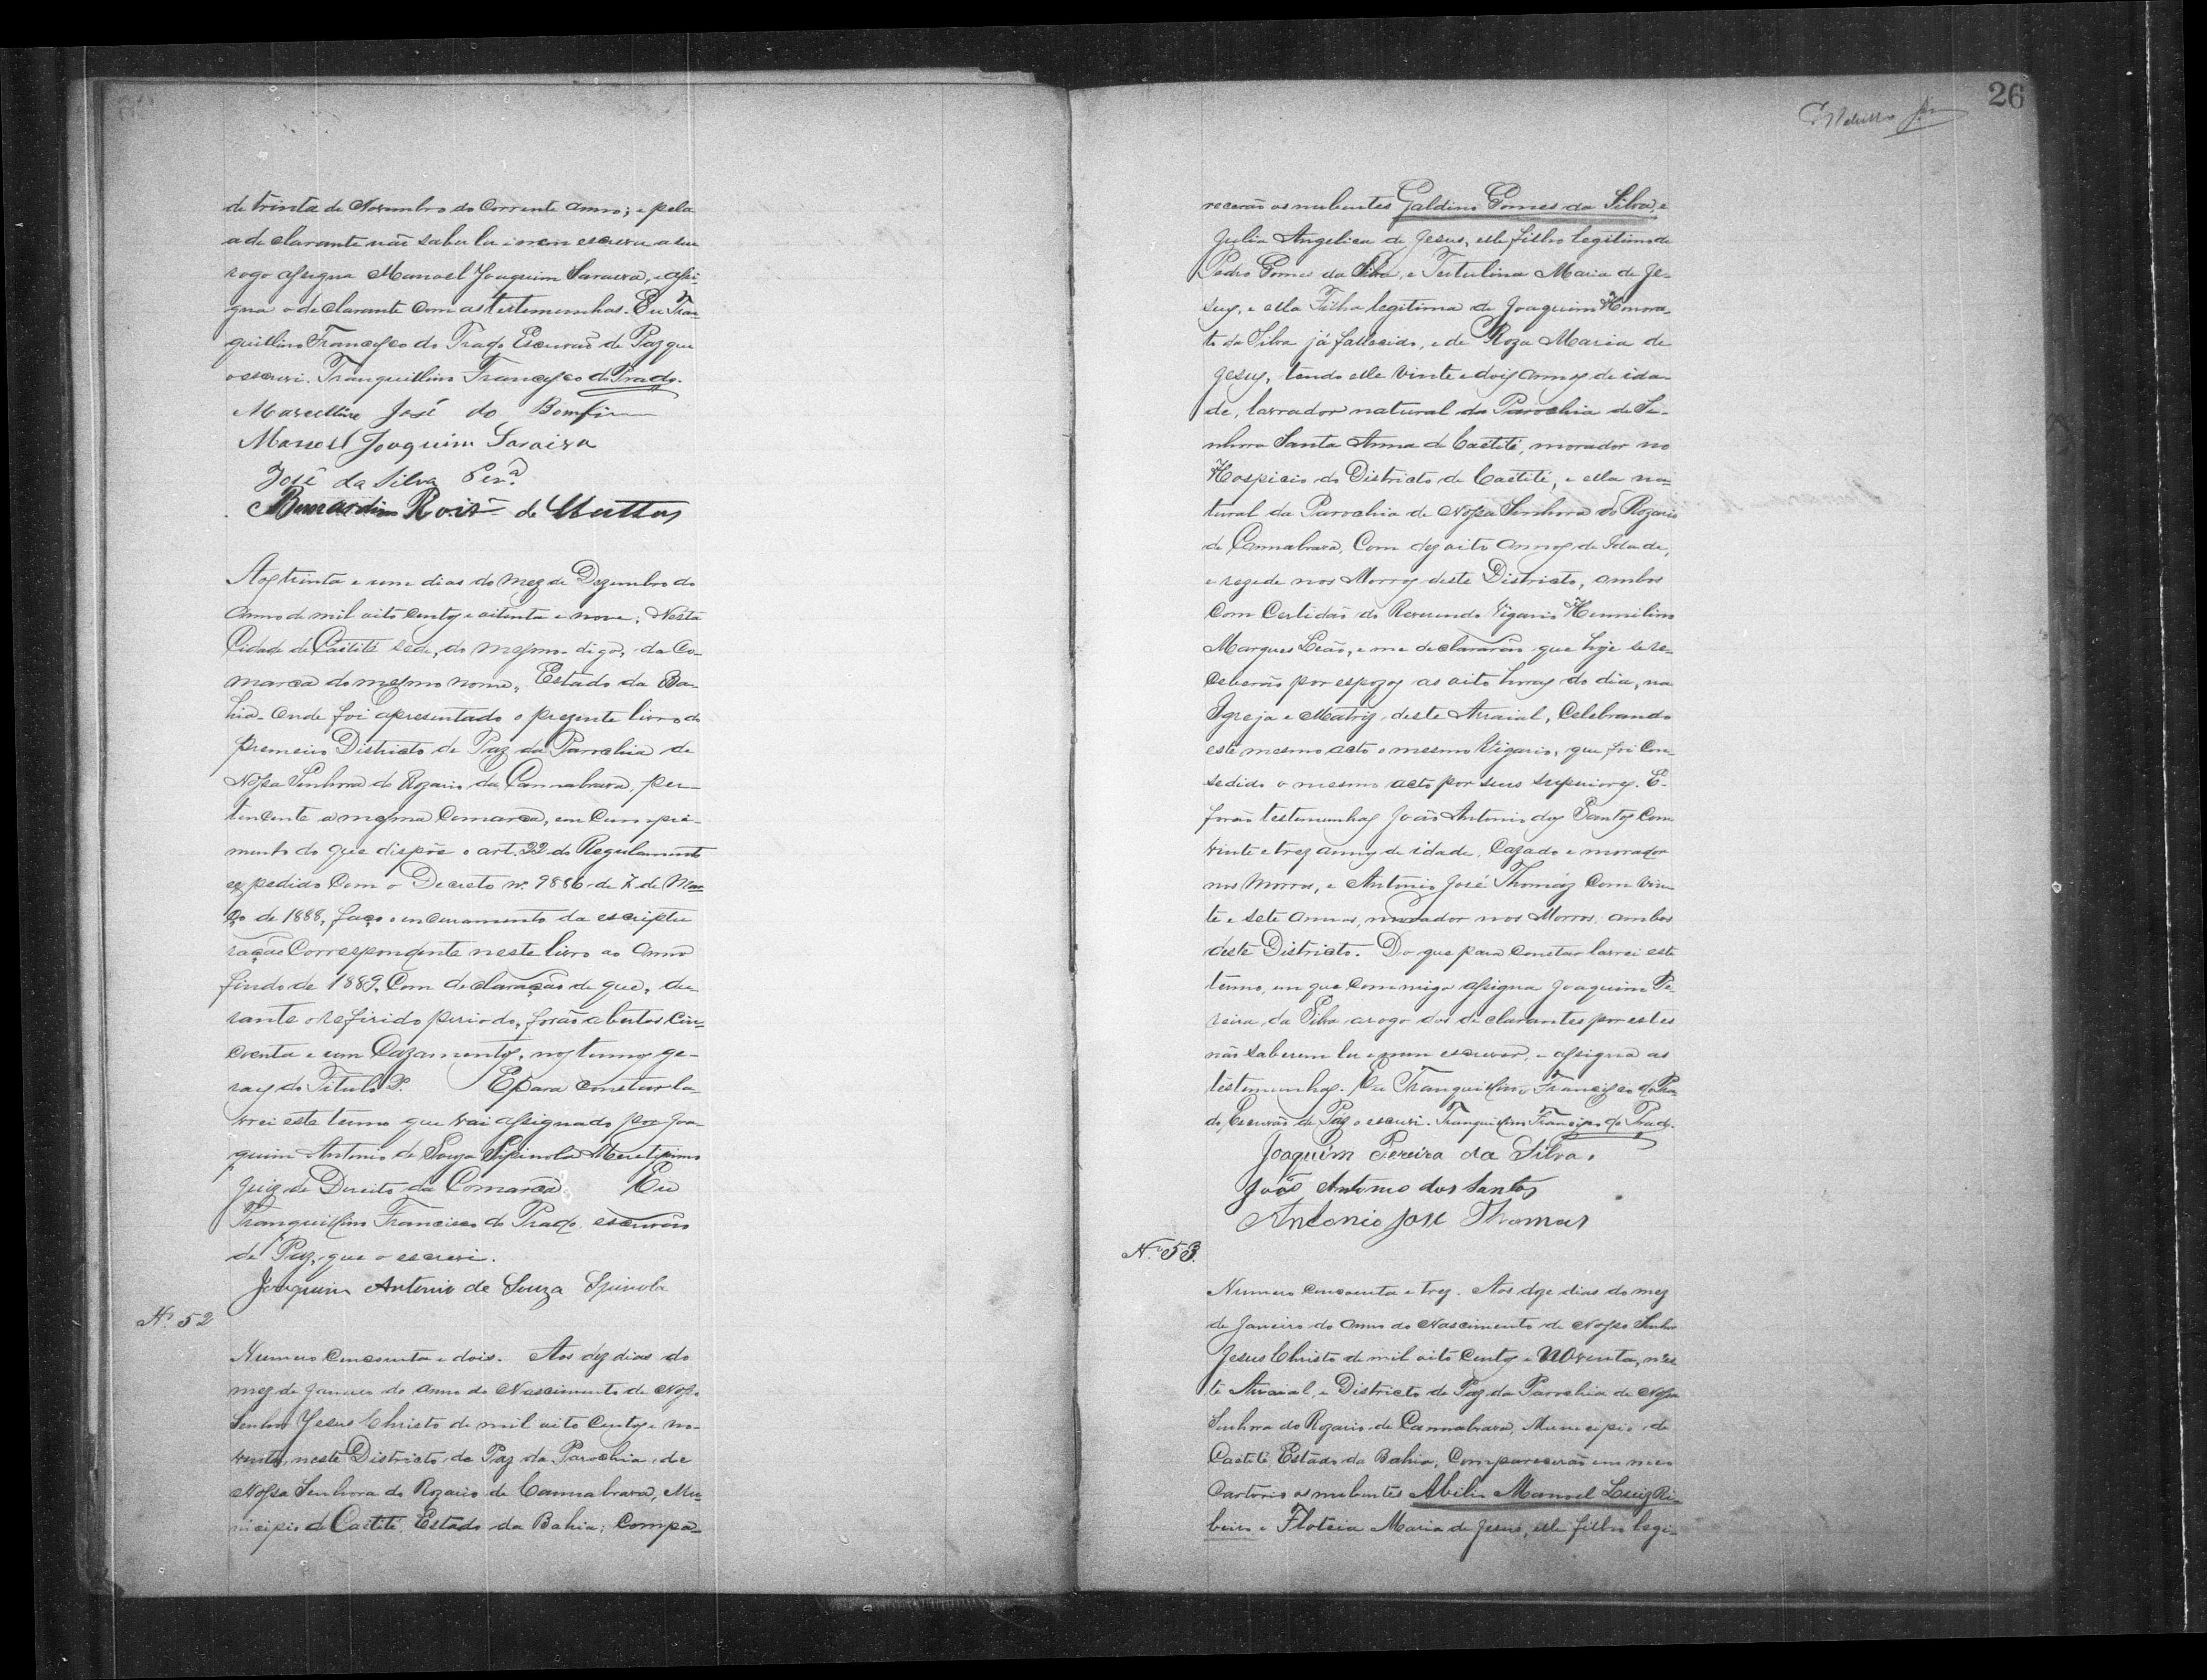 de trinta de Novembro do Corrente anno; e pela
a declarante não saber ler e nem escrever a seu
rogo assigna Manoel Joaquim Saraiva, e assi-
gna o declarante com as testemunhas. Eu Tran-
quillino Francisco do Prado Escrivão de Paz que
o escrevi. Tranquillino Francisco do Prado.
Marcellino José do Bomfim
Manoel Joaquim Saraiva
José da Silva Per.ª
Bernardino Roiz de Mattos
Aos trinta e um dias do mez de Dezembro do
anno de mil oito centos e oitenta e nove, Nesta
Cidade de Caetité sede, do mesmo digo, da Co-
marca do mesmo nome, Estado da Ba-
hia. Onde foi apresentado o prezente livro do
premeiro Districto de Paz da Parochia de
Nossa Senhora do Rozario da Cannabrava, per-
tencente a mesma Comarca, em cumpri-
mento do que dispõe o art. 22 do Regulamento
expedido Com o Decreto nº 9886 de 7 de Mar-
ço de 1888, faço o encerramento da escriptu
ração Correspondente neste livro ao anno
findo de 1889, Com declaração de que, du-
rante o refirido periodo, forão abertos cin-
coenta e um Cazamentos, nos termos ge-
raes do Titulo 2º. E para constar la-
vrei este termo que vai assignado por Joa-
quim Antonio de Souza Spinola Meretissimo
Juiz de Direito da Comarca. Eu
Tranquillino Francisco do Prado escrivão
de Paz, que o escrevi.
Joaquim Antonio de Souza Spinola
Nº 52
Numero Cencoenta e dois. Aos dez dias do
mez de Janeiro do anno do Nascimento de Nosso
Senhor Jesus Christo de mil oito Centos e no-
venta, neste Districto de Paz da Parochia de
Nossa Senhora do Rozario de Cannabrava, Mu-
nicipio de Caetité, Estado da Bahia; Compa-
26
recerão os nubentes Galdino Gomes da Silva, e
Julia Angelica de Jesus, elle filho legitimo de
Pedro Gomes da Silva, e Tertulina Maria de Je-
sus, e ella Filha legitima de Joaquim Honora-
to da Silva já fallecido, e de Roza Maria de
Jesus, tendo elle vinte e dois annos de ida-
de, lavrador natural da Parochia de Se-
nhora Santa Anna de Caetité, morador no
Hospicio do Districto de Caetité, e ella na-
tural da Parochia de Nossa Senhora do Rozario
de Cannabrava, Com dezoito annos de Idade,
e rezede nos Morros deste Districto, ambos
Com Certidão do Reverendo Vigario Hermilino
Marques Leão, e me declararão que hoje se re-
ceberão por espozos as oito horas do dia, na
Igreja e Matriz deste Arraial, Celebrando
este mesmo acto o mesmo Vigario, que foi Con-
sedido o mesmo acto por seus superiores. E
forão testemunhas João Antonio dos Santos Com
vinte e trez annos de idade, Cazado e morador
nos Morros, e Antonio José Thomáz Com vin-
te e sete annos, morador nos Morros, ambos
deste Districto. Do que para constar lavrei este
termo, em que commigo assigna Joaquim Pe-
reira da Silva a rogo dos declarantes por estes
não saberem ler e nem escrever, e assigna as
testemunhas. Eu Tranquillino Francisco do Pra-
do, Escrivão de Paz o escrevi. Tranquillino Francisco do Prado.
Joaquim Pereira da Silva.
João Antonio dos Santos
Antonio José Thomas
Nº 53.
Numero cencoenta e trez. Aos doze dias do mez
de Janeiro do anno do Nascimento de Nosso Senhor
Jesus Christo de mil oito Centos e Noventa, nes-
te Arraial, e Districto de Paz da Parochia de Nossa
Senhora do Rozario de Cannabrava, Municipio de
Caetité, Estado da Bahia, Comparecerão em meo
Cartorio os nubentes Abilio Manoel Luiz Ri-
beiro e Floteia Maria de Jesus, elle filho legi-